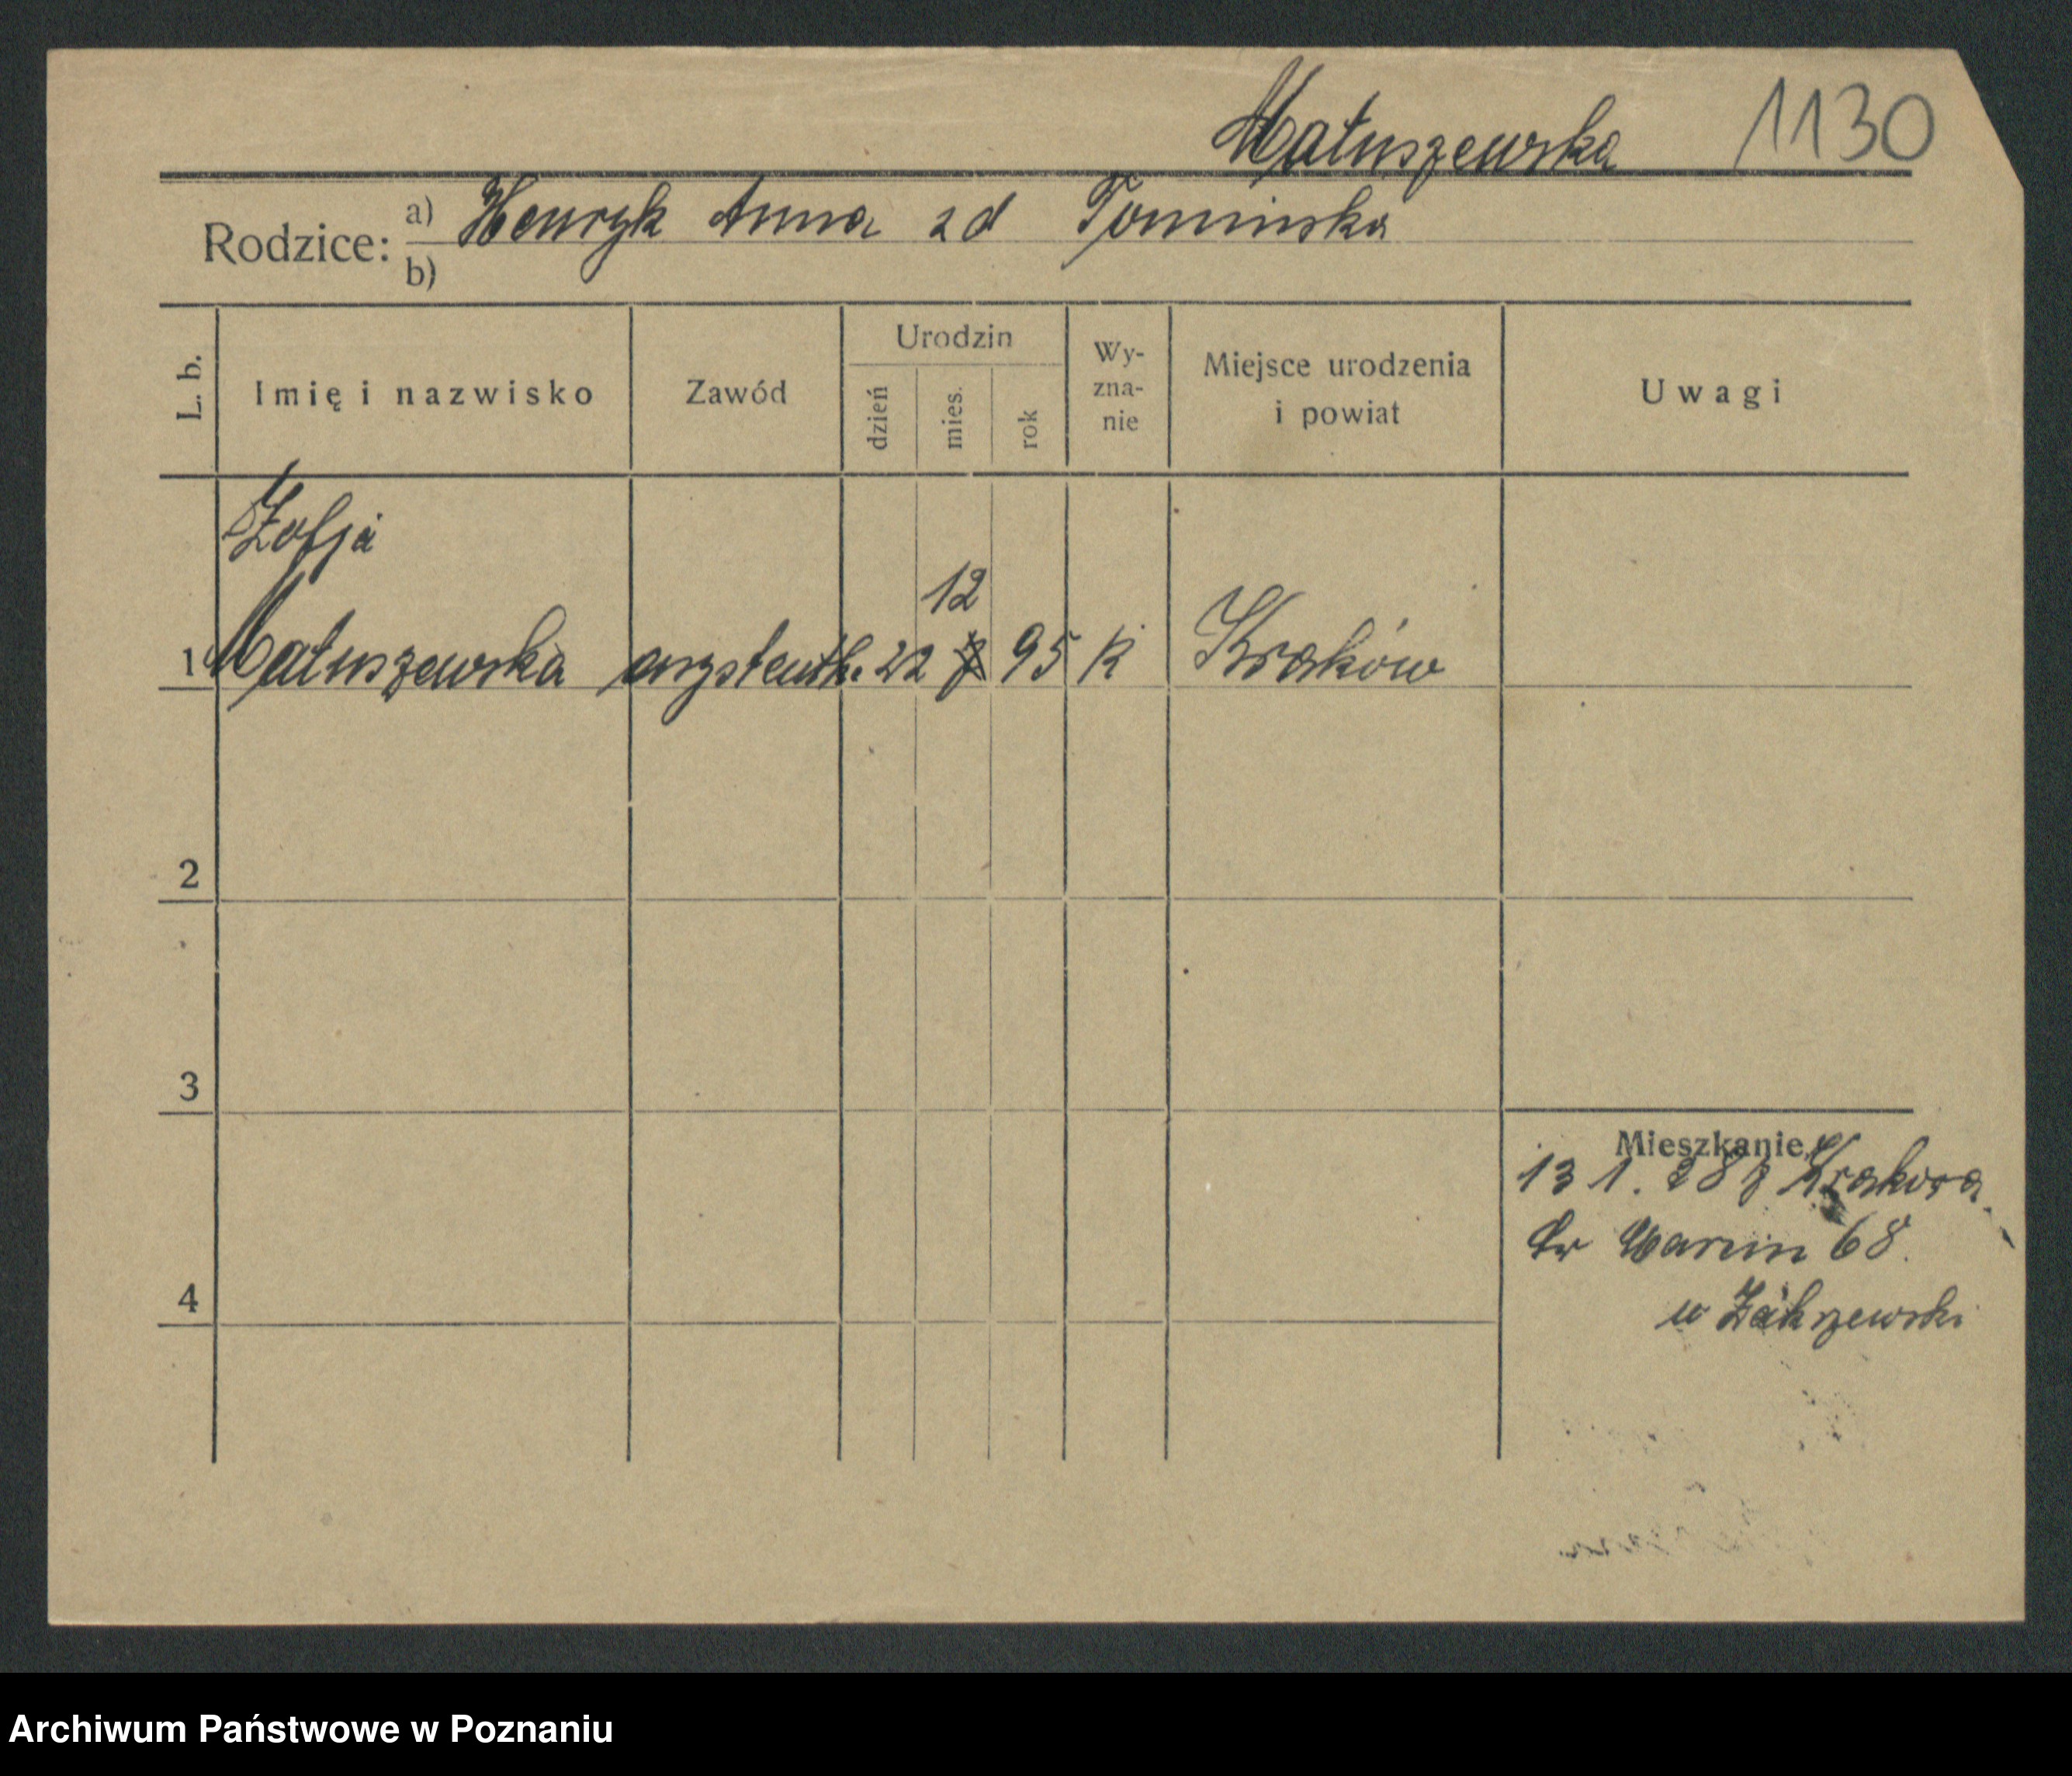 Matuszewska 1130
Rodzice: a) Henryk Anna zd Tomińska
b)
L. b. Imię i nazwisko Zawód Urodzin dzień mies. rok Wy-zna-nie Miejsce urodzenia i powiat Uwagi
Zofja
12
1 Matuszewska asystentk. 22 95 K Kraków
2
3
Mieszkanie
13 1. 28 z Krakowa
4
św Marcin 68.
u Zakrzewski
Archiwum Państwowe w Poznaniu